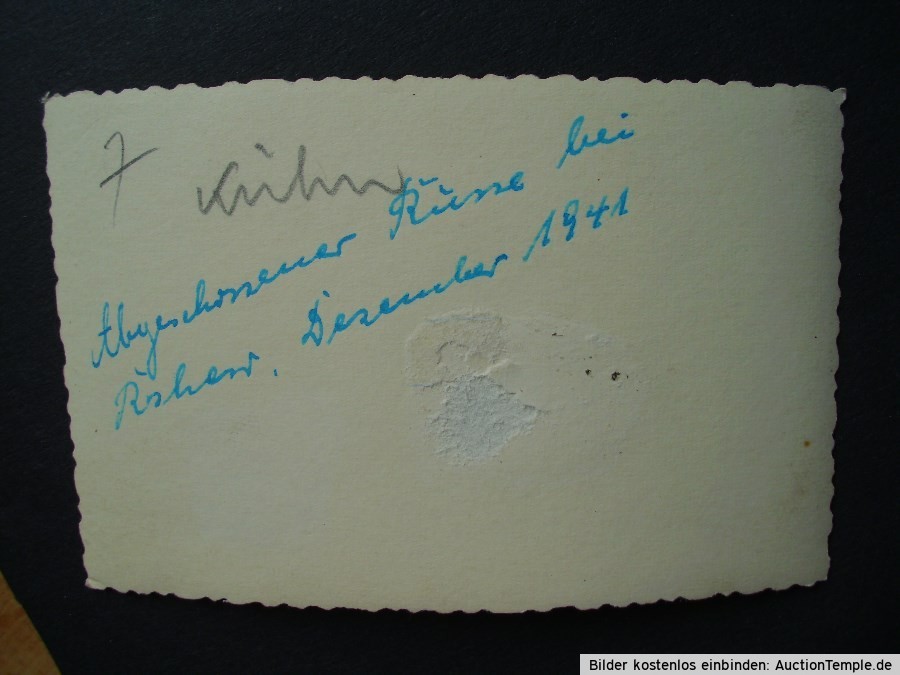 7 Kühn
Abgeschossener Russe bei
Rshew, Dezember 1941
Bilder kostenlos einbinden: AuctionTemple.de